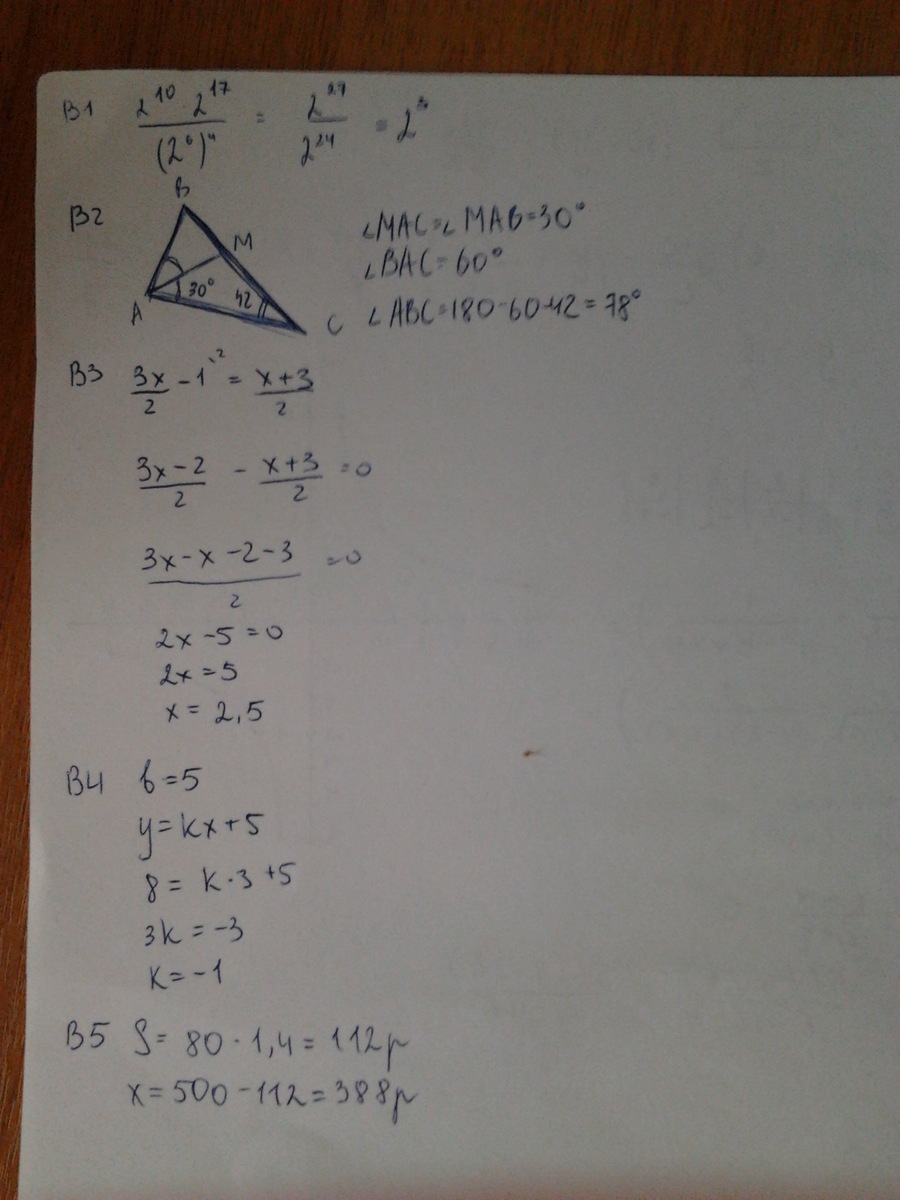 В1 (2^10 · 2^17)/(2^6)^4 = 2^27/2^24 = 2^3
В2
B
M
A
30°
42
C
∠MAC=∠MAB=30°
∠BAC=60°
∠ABC=180-60-42=78°
В3 3x/2 - 1^\2 = (x+3)/2
(3x-2)/2 - (x+3)/2 =0
(3x-x-2-3)/2 =0
2x-5=0
2x=5
x=2,5
В4 b=5
y=kx+5
8=k·3+5
3k=-3
k=-1
В5 S=80·1,4=112р
x=500-112=388р